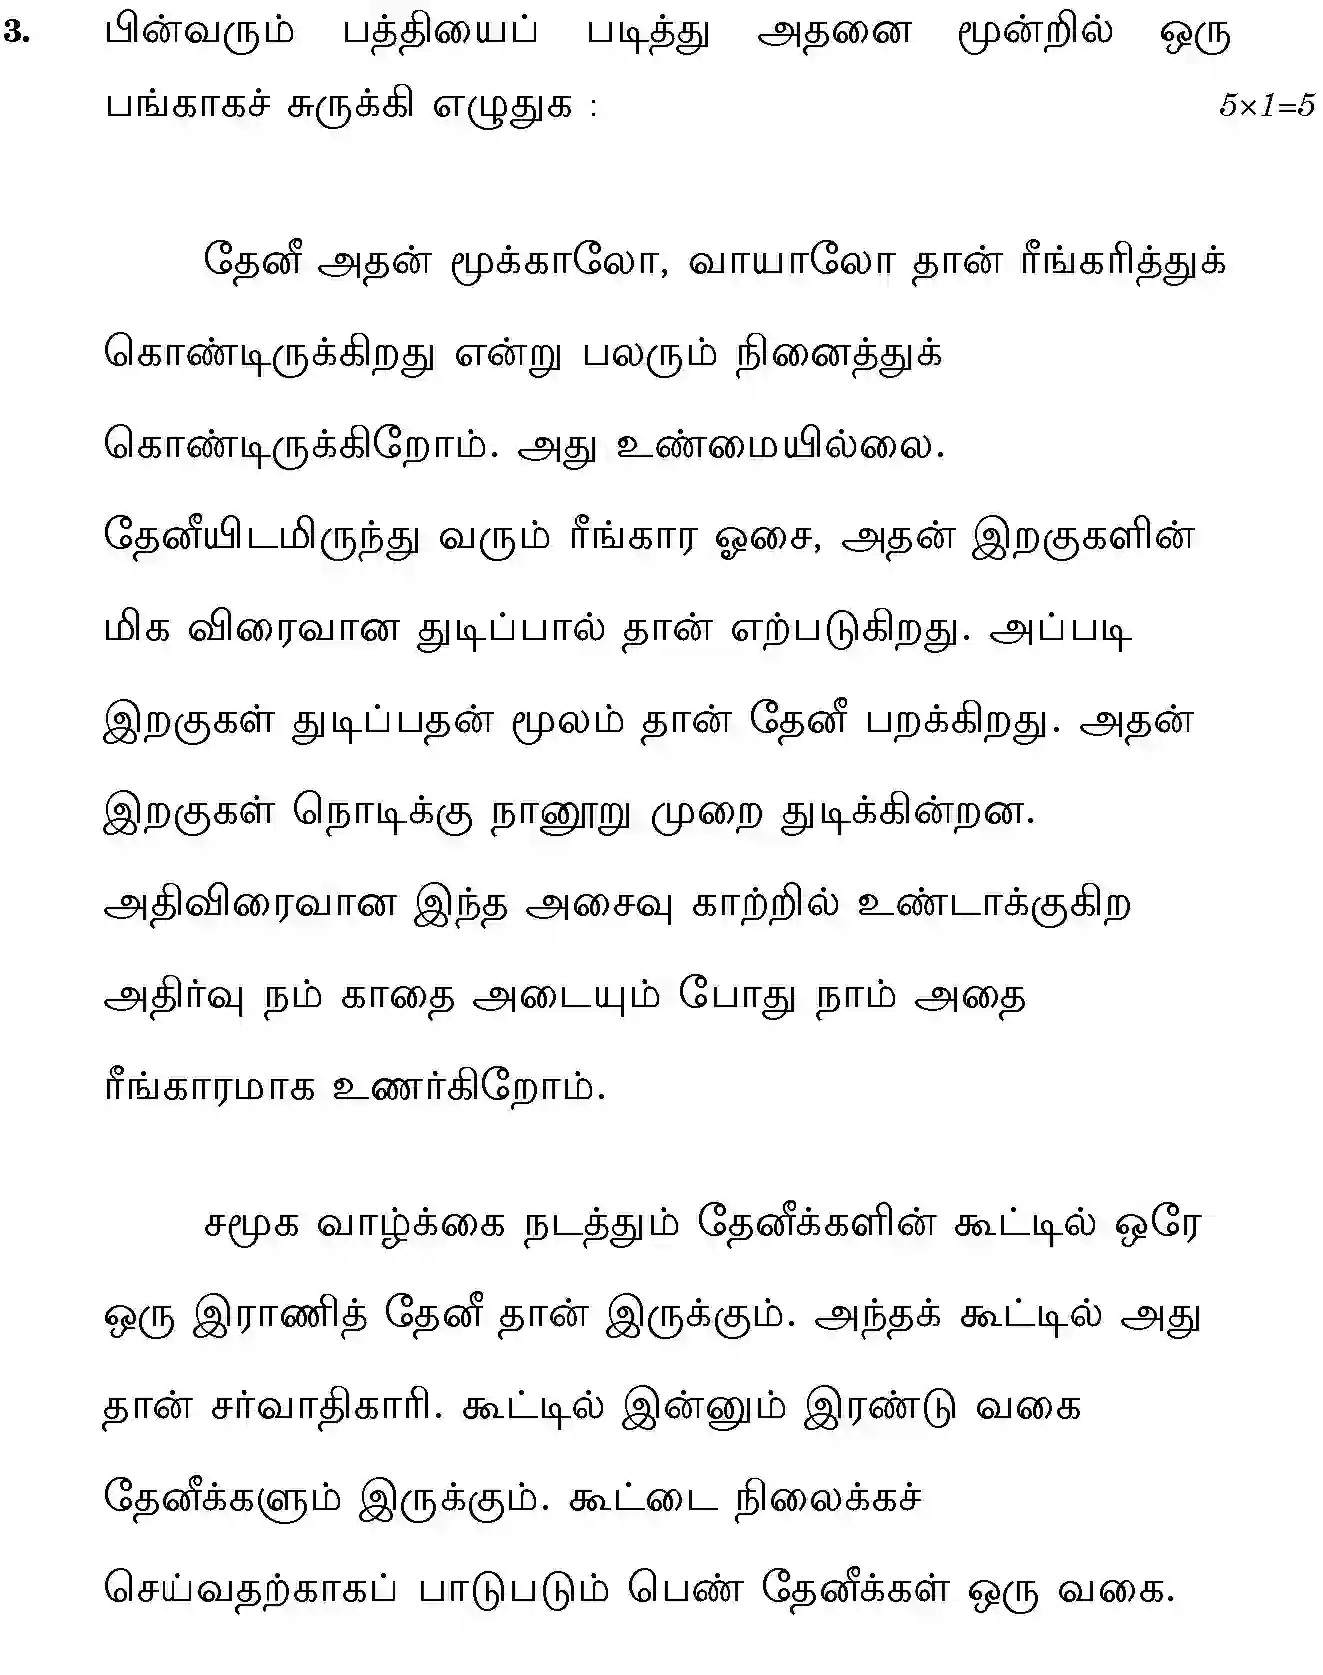 3. பின்வரும் பத்தியைப் படித்து அதனை மூன்றில் ஒரு
பங்காகச் சுருக்கி எழுதுக : 5×1=5
தேனீ அதன் மூக்காலோ, வாயாலோ தான் ரீங்கரித்துக்
கொண்டிருக்கிறது என்று பலரும் நினைத்துக்
கொண்டிருக்கிறோம். அது உண்மையில்லை.
தேனீயிடமிருந்து வரும் ரீங்கார ஓசை, அதன் இறகுகளின்
மிக விரைவான துடிப்பால் தான் எற்படுகிறது. அப்படி
இறகுகள் துடிப்பதன் மூலம் தான் தேனீ பறக்கிறது. அதன்
இறகுகள் நொடிக்கு நானூறு முறை துடிக்கின்றன.
அதிவிரைவான இந்த அசைவு காற்றில் உண்டாக்குகிற
அதிர்வு நம் காதை அடையும் போது நாம் அதை
ரீங்காரமாக உணர்கிறோம்.
சமூக வாழ்க்கை நடத்தும் தேனீக்களின் கூட்டில் ஒரே
ஒரு இராணித் தேனீ தான் இருக்கும். அந்தக் கூட்டில் அது
தான் சர்வாதிகாரி. கூட்டில் இன்னும் இரண்டு வகை
தேனீக்களும் இருக்கும். கூட்டை நிலைக்கச்
செய்வதற்காகப் பாடுபடும் பெண் தேனீக்கள் ஒரு வகை.